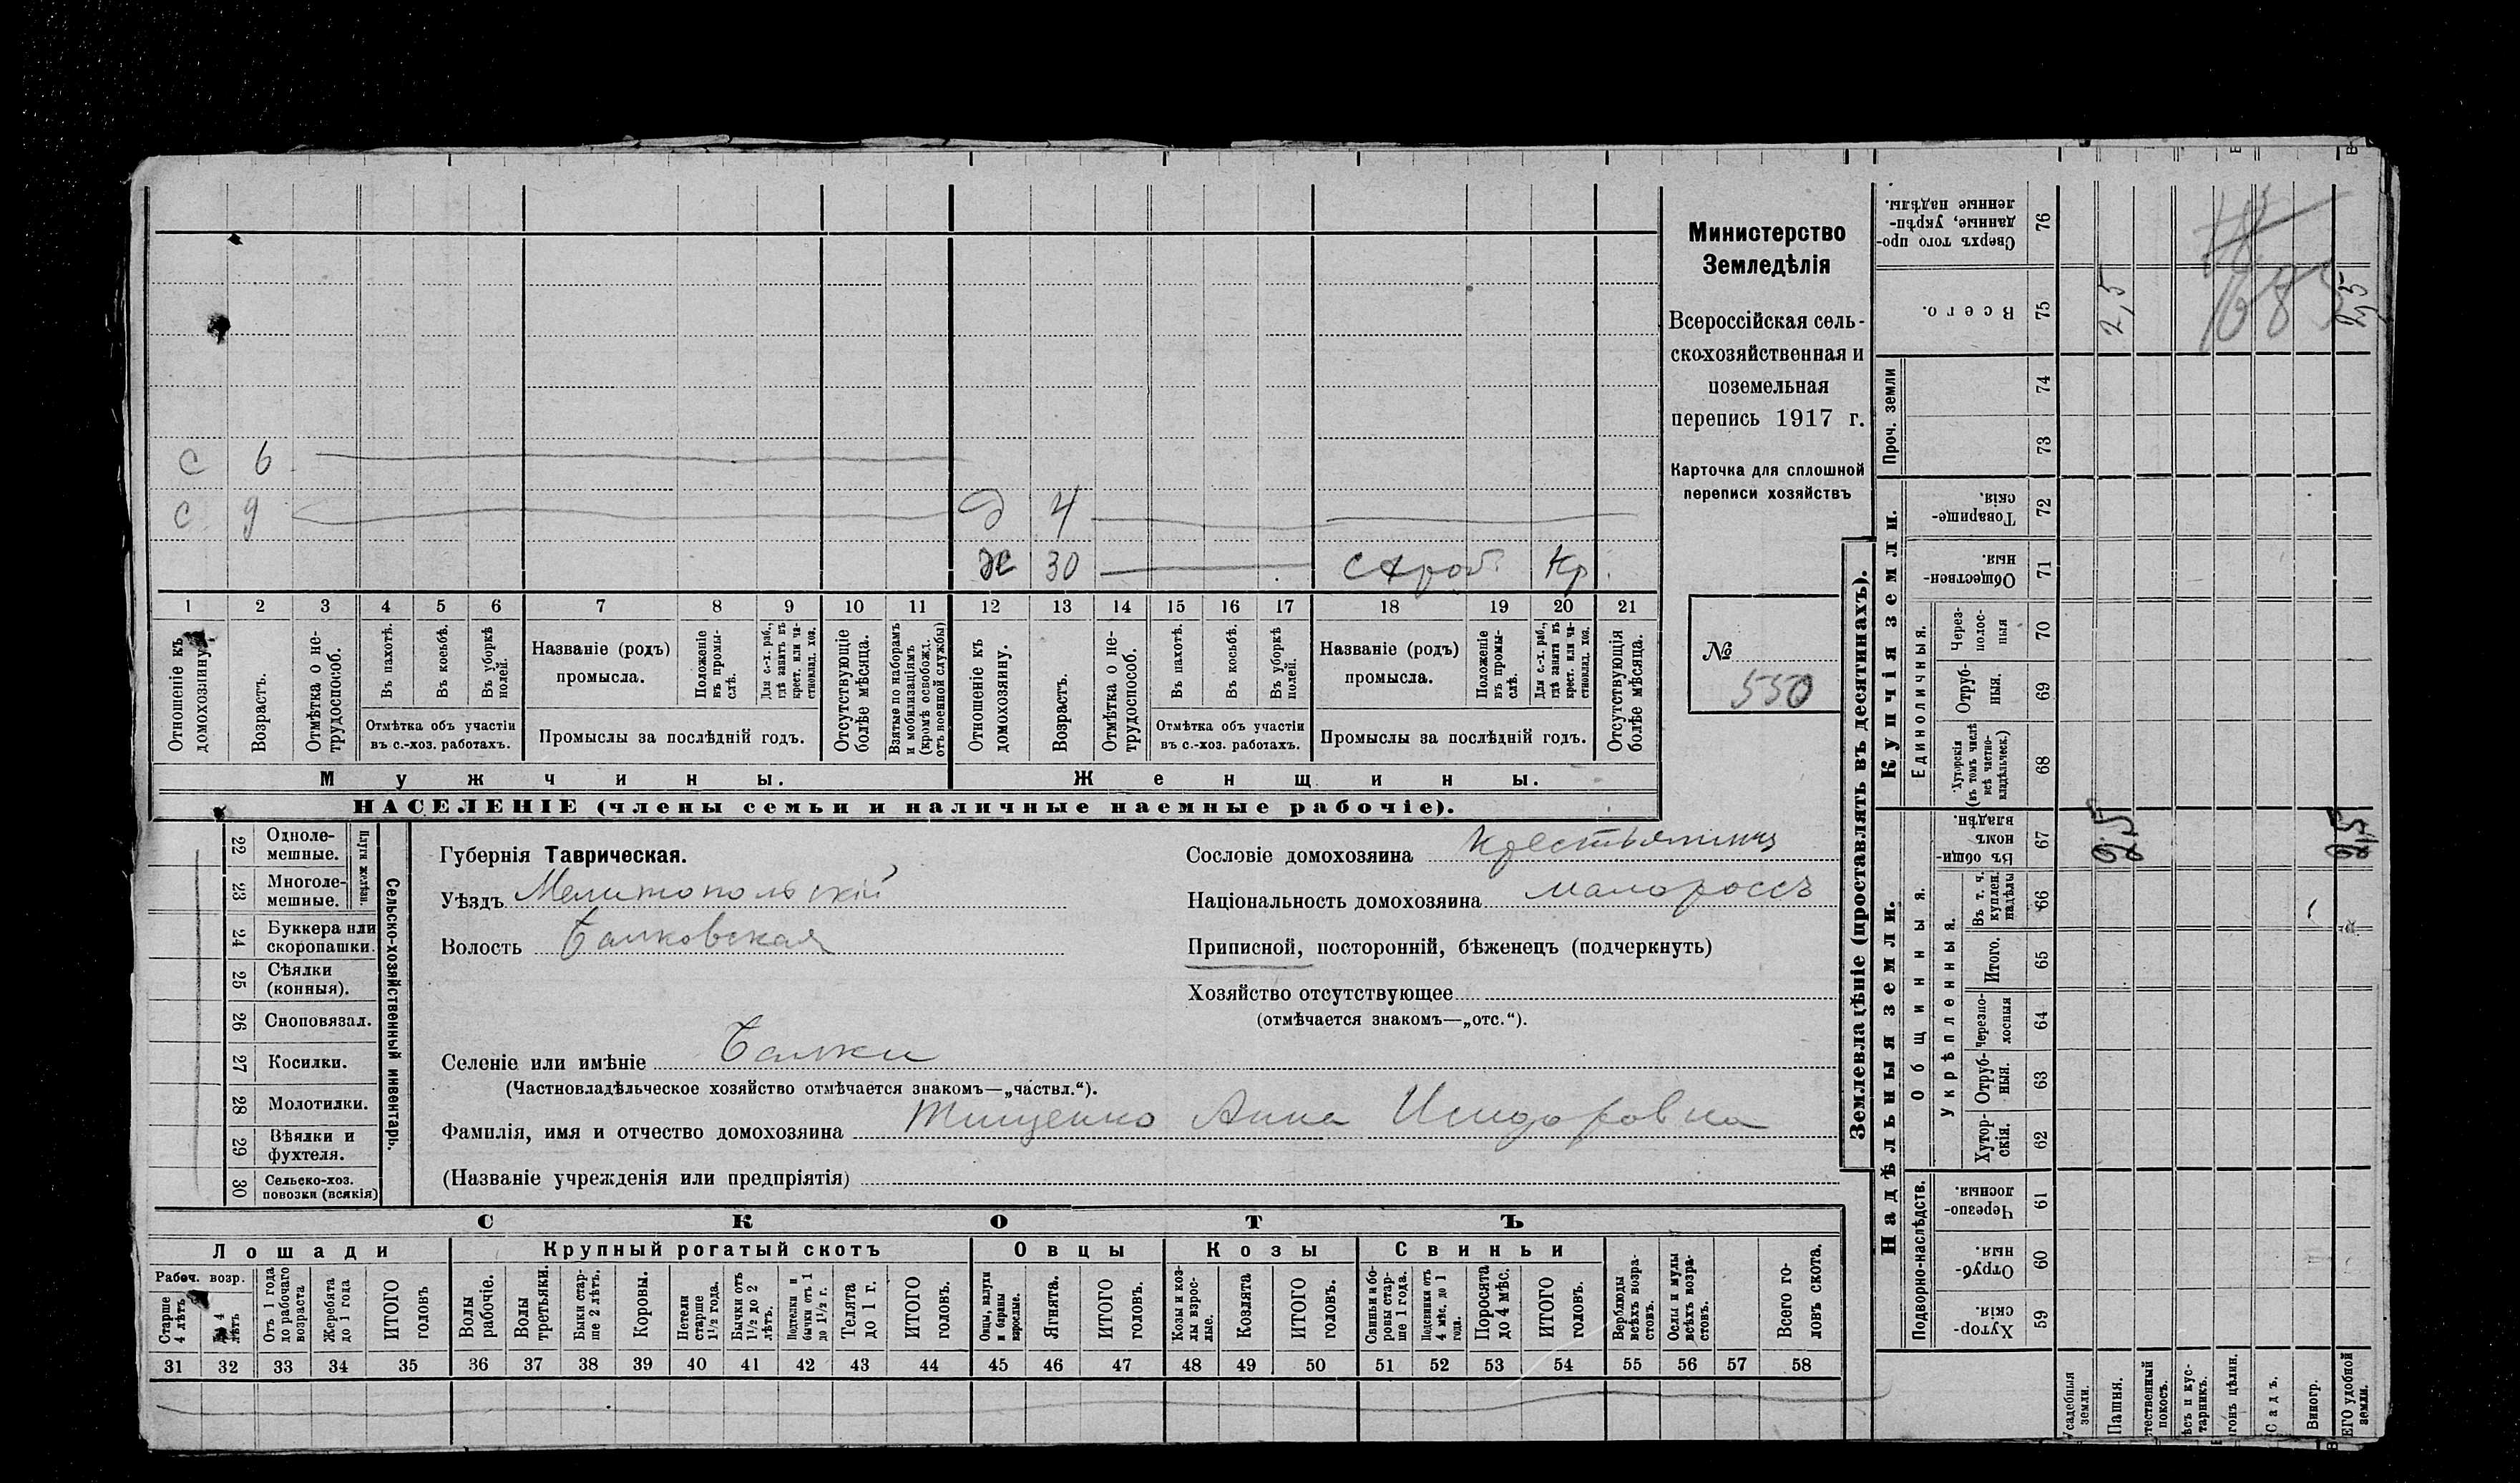 Министерство
Земледѣлія
Всероссійская сель-
ско-хозяйственная и
поземельная
перепись 1917 г.
Карточка для сплошной
переписи хозяйствъ
№
550
с 6
с 9 д 4
ж 30 Кр.
1 2 3 4 5 6 7 8 9 10 11 12 13 14 15 16 17 18 19 20 21
Отношеніе къ домохозяину.
Возрастъ.
Отмѣтка о не-трудоспособ.
Въ пахотѣ.
Въ косьбѣ.
Въ уборкѣ полей.
Отмѣтка объ участіи
въ с.-хоз. работахъ.
Названіе (родъ)
промысла.
Положеніе въ промы-слѣ.
Для с.-х. раб., гдѣ занятъ въ крест. или ча-стновлад. хоз.
Промыслы за послѣдній годъ.
Отсутствующіе болѣе мѣсяца.
Взятые по наборамъ и мобилизаціямъ (кромѣ освобожд. отъ военной службы)
Отношеніе къ домохозяину.
Возрастъ.
Отмѣтка о не-трудоспособ.
Въ пахотѣ.
Въ косьбѣ.
Въ уборкѣ полей.
Отмѣтка объ участіи
въ с.-хоз. работахъ.
Названіе (родъ)
промысла.
Положеніе въ промы-слѣ.
Для с.-х. раб., гдѣ занята въ крест. или ча-стновлад. хоз.
Промыслы за послѣдній годъ.
Отсутствующія болѣе мѣсяца.
Мужчины. Женщины.
НАСЕЛЕНІЕ (члены семьи и наличные наемные рабочіе).
Сельско-хозяйственный инвентарь.
Плуги желѣзн.
22 Одноле-мешные.
23 Многоле-мешные.
24 Буккера или скоропашки.
25 Сѣялки (конныя).
26 Сноповязал.
27 Косилки.
28 Молотилки.
29 Вѣялки и фухтеля.
30 Сельско-хоз. повозки (всякія)
Губернія Таврическая.
Уѣздъ Мелитопольскій
Волость Балковская
Селеніе или имѣніе Балки
(Частновладѣльческое хозяйство отмѣчается знакомъ—„частвл.“).
Фамилія, имя и отчество домохозяина Тищенко Анна Исидоровна
(Названіе учрежденія или предпріятія)
Сословіе домохозяина Крестьянинъ
Національность домохозяина малороссъ
Приписной, посторонній, бѣженецъ (подчеркнуть)
Хозяйство отсутствующее
(отмѣчается знакомъ—„отс.“).
СКОТЪ
Лошади Крупный рогатый скотъ Овцы Козы Свиньи
Рабоч. возр.
Старше 4 лѣтъ
До 4 лѣтъ
Отъ 1 года до рабочаго возраста
Жеребята до 1 года
ИТОГО головъ
Волы рабочіе.
Волы третьяки.
Быки стар-ше 2 лѣтъ.
Коровы.
Нетели старше 1½ года.
Бычки отъ 1½ до 2 лѣтъ.
Подтелки и бычки отъ 1 до 1½ г.
Телята до 1 г.
ИТОГО головъ.
Овцы, валухи и бараны взрослые.
Ягнята.
ИТОГО головъ.
Козы и коз-лы взрос-лые.
Козлята
ИТОГО головъ.
Свиньи и бо-ровы стар-ше 1 года.
Подсвинки отъ 4 мѣс. до 1 года.
Поросята до 4 мѣс.
ИТОГО головъ.
Верблюды всѣхъ возра-стовъ.
Ослы и мулы всѣхъ возра-стовъ.
Всего го-ловъ скота.
31 32 33 34 35 36 37 38 39 40 41 42 43 44 45 46 47 48 49 50 51 52 53 54 55 56 57 58
Землевладѣніе (проставлять въ десятинахъ).
Надѣльныя земли. Купчія земли. Проч. земли
Подворно-наслѣдств.
Общинныя.
Укрѣпленныя.
Единоличныя.
Хутор-скія. 59
Отруб-ныя. 60
Черезпо-лосныя. 61
Хутор-скія. 62
Отруб-ныя. 63
Черезпо-лосныя 64
Итого. 65
Въ т. ч. куплен. надѣлы 66
Въ общи-номъ владѣн. 67
Хуторскія (въ томъ числѣ всѣ частно-владѣльческ.) 68
Отруб-ныя. 69
Через-полос-ныя 70
Обществен-ныя. 71
Товарище-скія. 72
73
74
Всего. 75
Сверхъ того про-данные, укрѣп-ленные надѣлы. 76
Усадебныя земли.
Пашня.
2,5
2,5
Виногр.
Садъ.
ЕГО удобной земли.
2,5
2,5